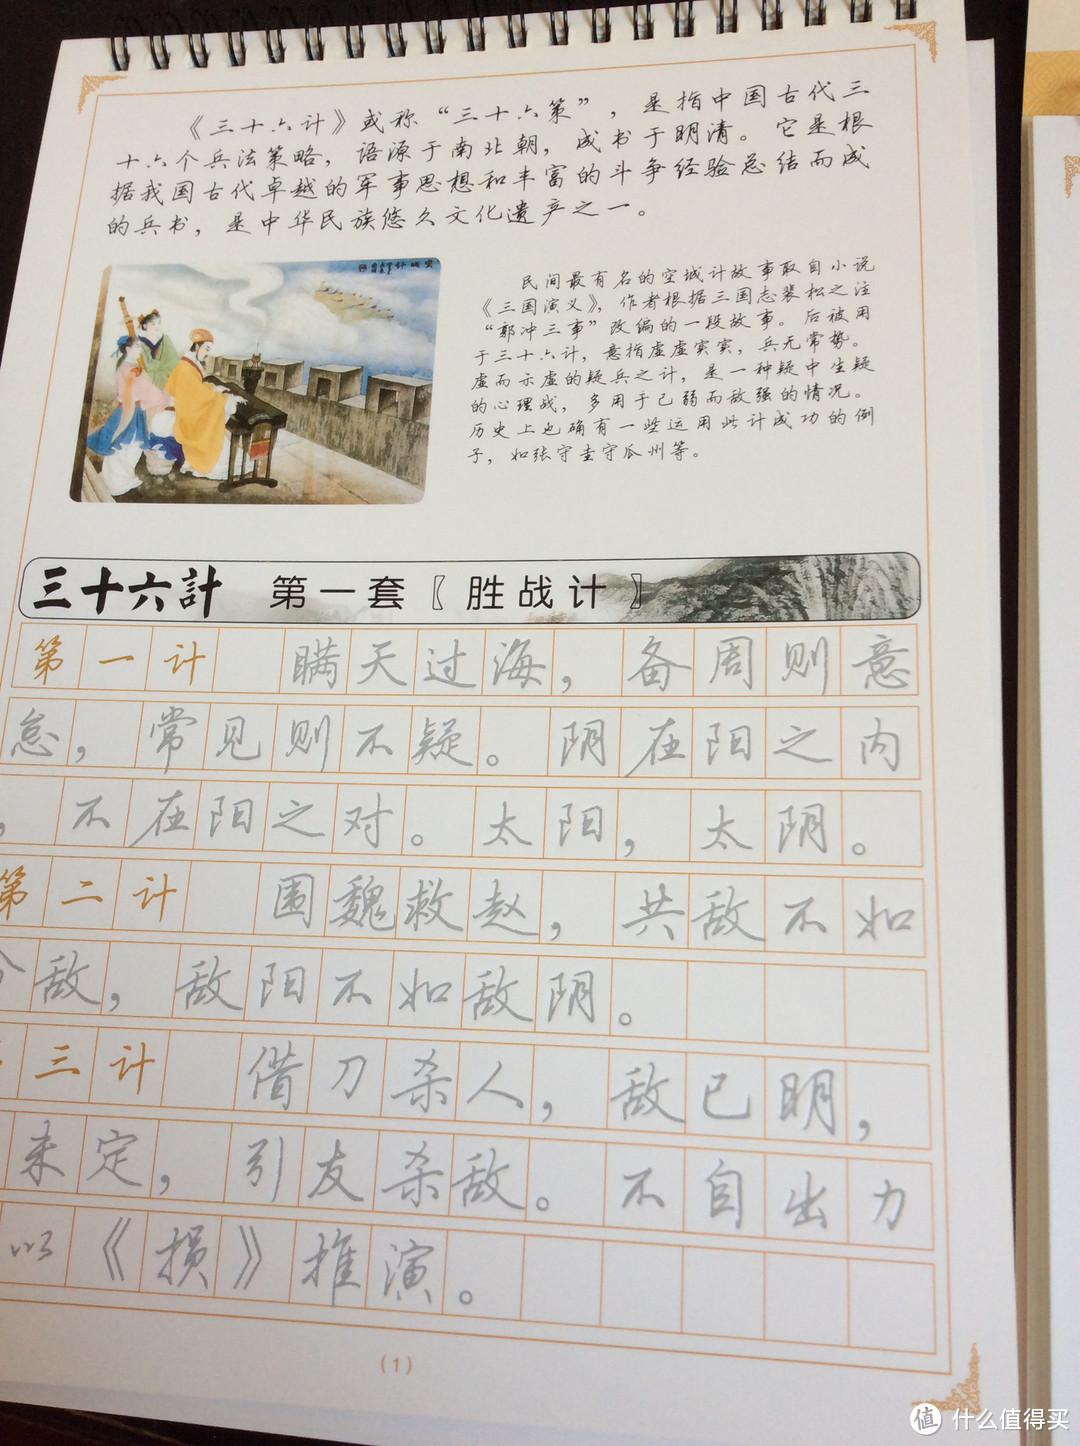 《三十六计》或称“三十六策”，是指中国古代三
十六个兵法策略，语源于南北朝，成书于明清。它是根
据我国古代卓越的军事思想和丰富的斗争经验总结而成
的兵书，是中华民族悠久文化遗产之一。
民间最有名的空城计故事取自小说
《三国演义》，作者根据三国志裴松之注
“郭冲三事”改编的一段故事。后被用
于三十六计，意指虚虚实实，兵无常势。
虚而示虚的疑兵之计，是一种疑中生疑
的心理战，多用于己弱而敌强的情况。
历史上也确有一些运用此计成功的例
子，如张守圭守瓜州等。
三十六計 第一套〖胜战计〗
第一计 瞒天过海，备周则意
怠，常见则不疑。阴在阳之内
，不在阳之对。太阳，太阴。
第二计 围魏救赵，共敌不如
分敌，敌阳不如敌阴。
三计 借刀杀人，敌已明，
未定，引友杀敌。不自出力
以《损》推演。
(1)
值 什么值得买